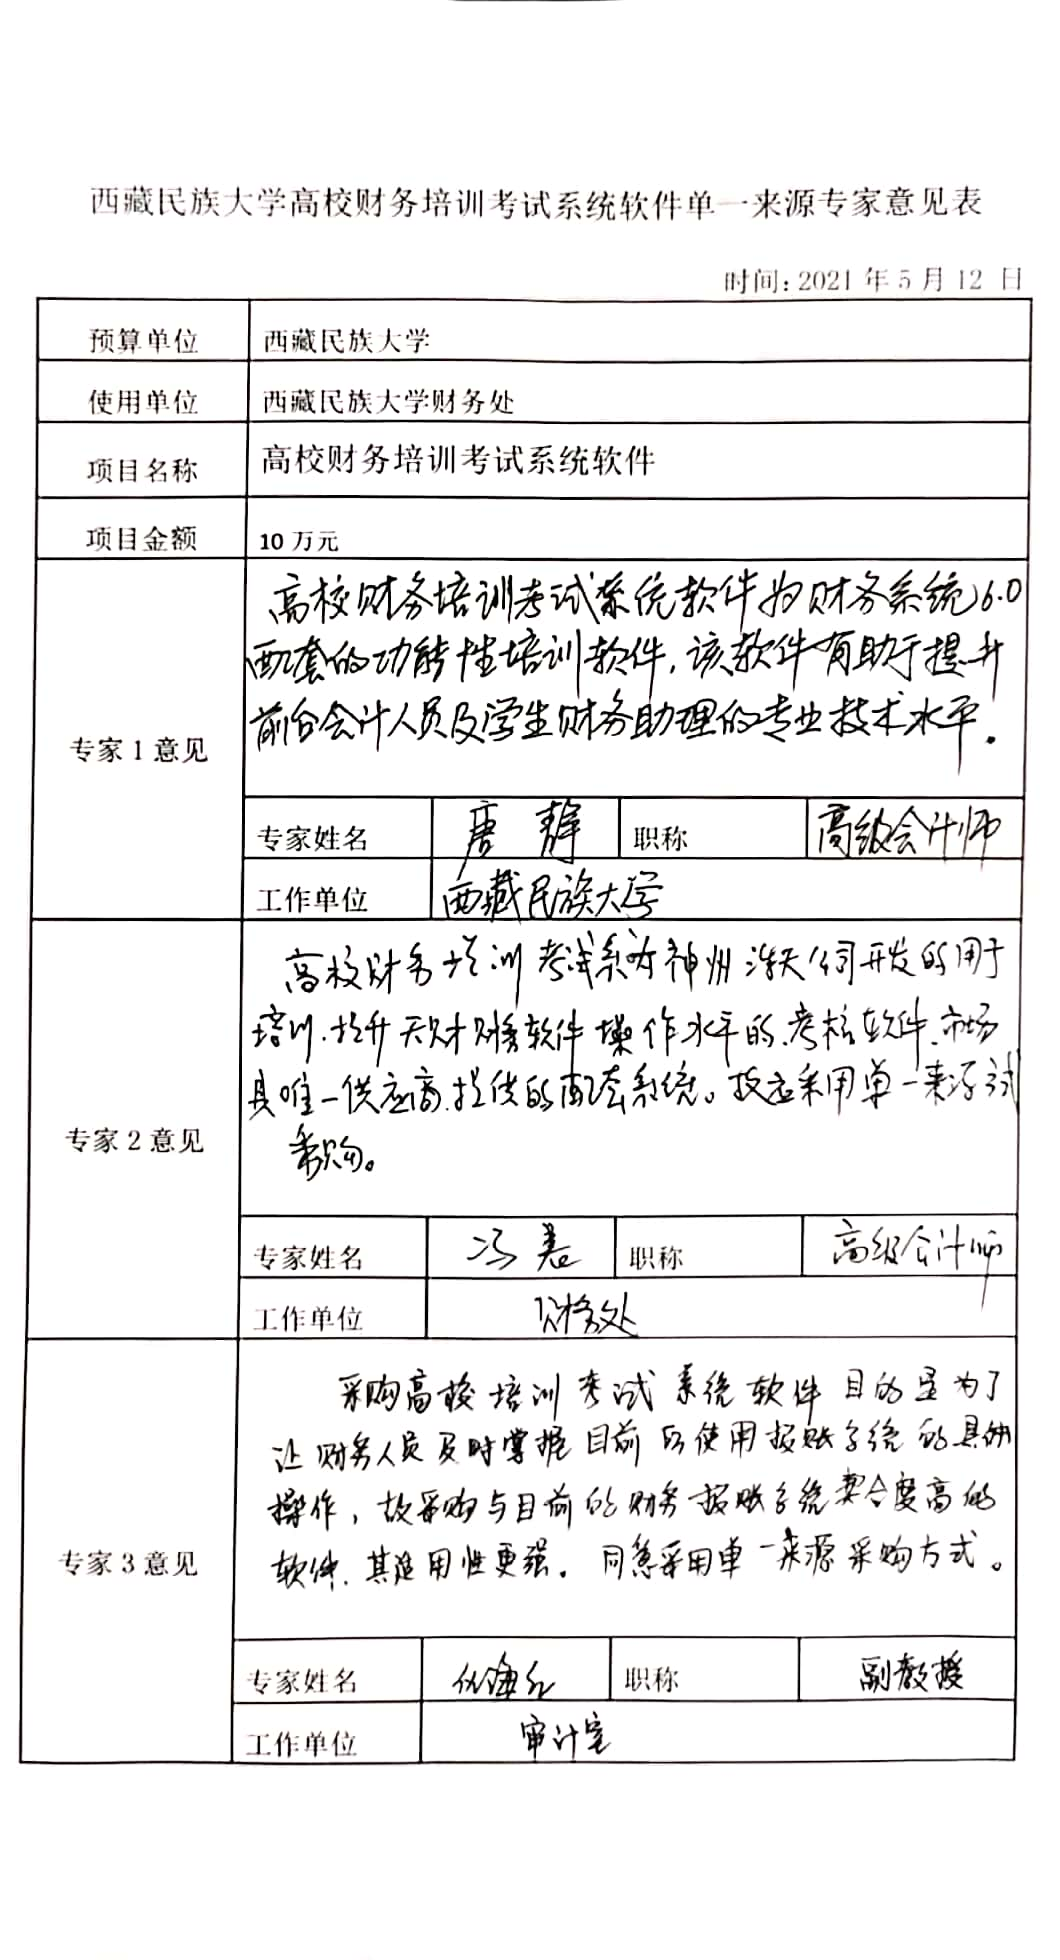 西藏民族大学高校财务培训考试系统软件单一来源专家意见表
时间: 2021 年 5 月 12 日
预算单位 西藏民族大学
使用单位 西藏民族大学财务处
项目名称 高校财务培训考试系统软件
项目金额 10 万元
专家 1 意见
高校财务培训考试系统软件为财务系统6.0
配套的功能性培训软件,该软件有助于提升
前台会计人员及学生财务助理的专业技术水平.
专家姓名 唐静 职称 高级会计师
工作单位 西藏民族大学
专家 2 意见
高校财务培训考试系为神州浩天公司开发的用于
培训.提升天财财务软件操作水平的考核软件.市场
具唯一供应商提供的配套系统。故应采用单一来源方式
采购。
专家姓名 冯 职称 高级会计师
工作单位 财务处
专家 3 意见
采购高校培训考试系统软件目的是为了
让财务人员及时掌握目前所使用报账系统的具体
操作,故采购与目前的财务报账系统契合度高的
软件.其适用性更强。同意采用单一来源采购方式。
专家姓名 职称 副教授
工作单位 审计室